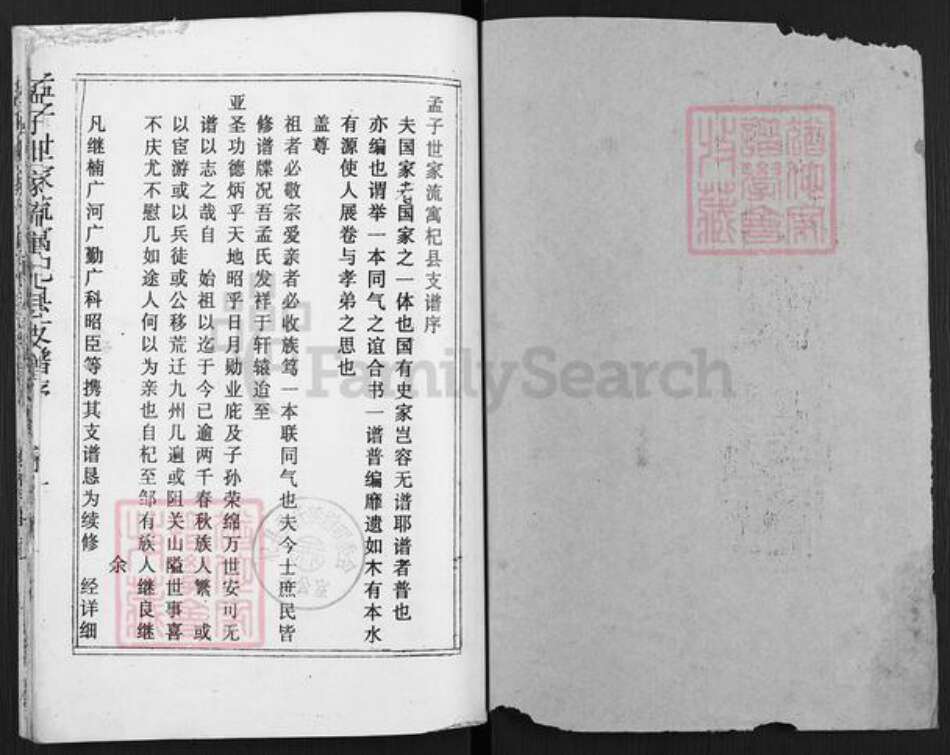 孟子世家流寓杞县支谱序
夫国家者国家之一体也国有史家岂容无谱耶谱者普也
亦编也谓举一本同气之谊合书一谱普编靡遗如木有本水
有源使人展卷与孝弟之思也
盖尊
祖者必敬宗爱亲者必收族笃一本联同气也夫今士庶民皆
修谱牒况吾孟氏发祥于轩辕迨至
亚圣功德炳乎天地昭乎日月勋业庇及子孙荣绵万世安可无
谱以志之哉自 始祖以迄于今已逾两千春秋族人繁 或
以宦游或以兵徒或公移荒迁九州几遍或阻关山隘世事喜
不庆尤不慰几如途人何以为亲也自杞至邹有族人继良继
余
凡继楠广河广勤广科昭臣等携其支谱恳为续修 经详细
孟子世家流寓杞县支谱序
FamilySearch